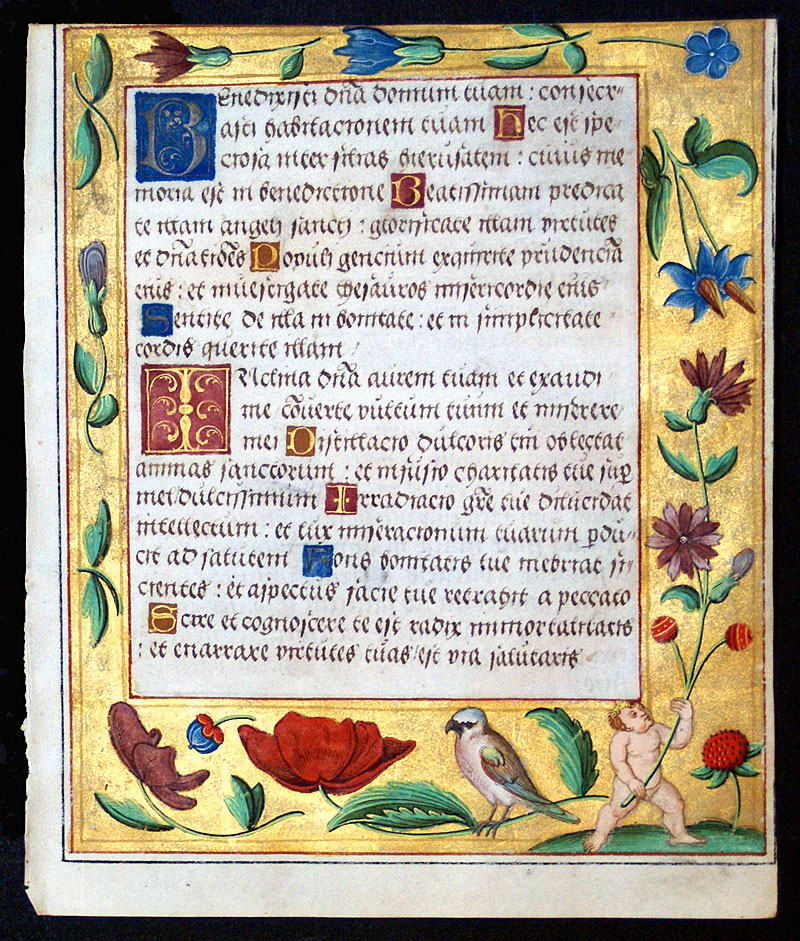 Benedixisti dña domum tuam : consecr-
asti habitacionem tuam Hec est spe-
ciosa inter filias hierusalem : cuius me
moria est in benedictione Beatissimam predica
te illam angeli sancti : glorificate illam virtutes
et dñatiões Populi gencium exquirite prudenciã
eius : et invesigate thesauros misericordie eius
Sentite de illa in bonitate : et in simplicitate
cordis querite illam /
INclina dñã aurem tuam et exaudi
me cõuerte vultum tuum et miserere
mei Distillacio dulcoris tui oblectat
animas sanctorum : et infusio charitatis tue sup
mel dulcissimum Irradiacio grẽ tue dilucidat
intellectum : et lux miseracionum tuarum perdu-
cit ad salutem Fons bonitatis tue inebriat si-
cientes : et aspectus facie tue retrahit a peccato
Scire et cognoscere te est radix immortalitatis
: et enarrare virtutes tuas est via salutaris